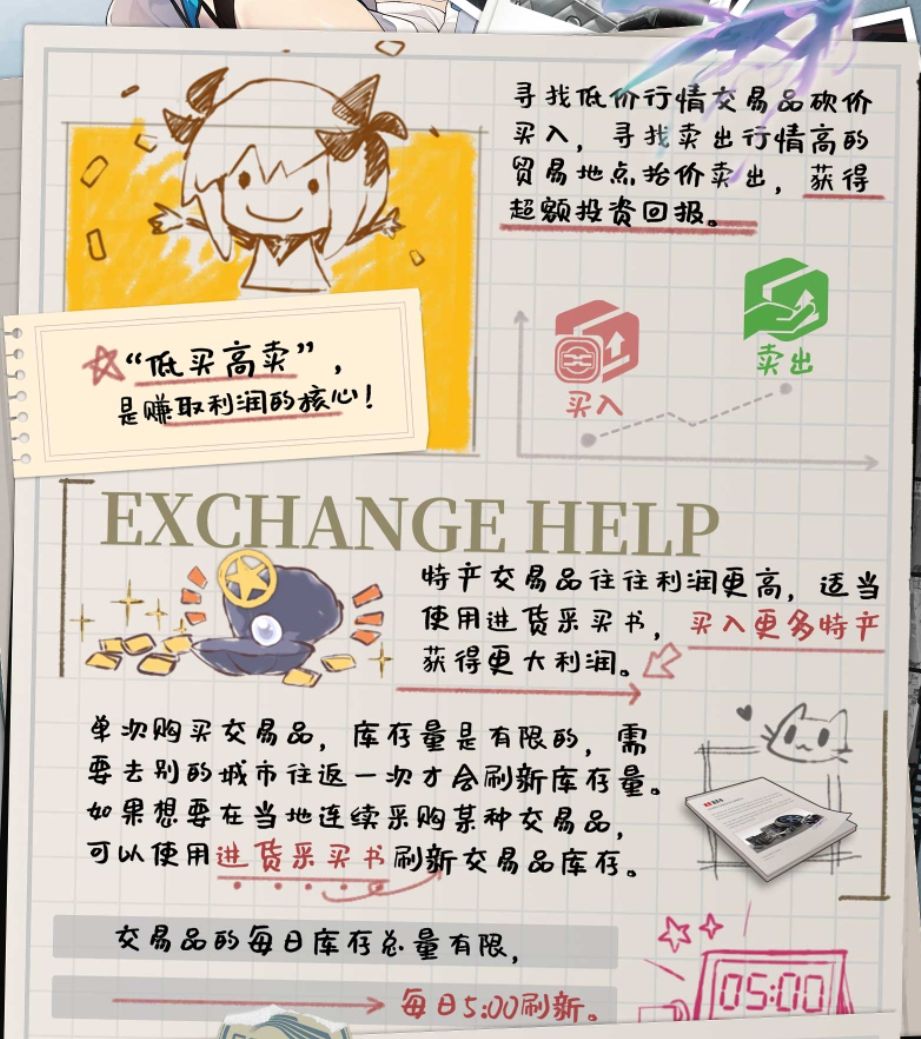 寻找低价行情交易品砍价
买入，寻找卖出行情高的
贸易地点抬价卖出，获得
超额投资回报。
“低买高卖”，
是赚取利润的核心！
卖出
买入
EXCHANGE HELP
特产交易品往往利润更高，适当
使用进货采买书，买入更多特产
获得更大利润。
单次购买交易品，库存量是有限的，需
要去别的城市往返一次才会刷新库存量。
如果想要在当地连续采购某种交易品，
可以使用进货采买书刷新交易品库存。
交易品的每日库存总量有限，
每日5:00刷新。
05:00